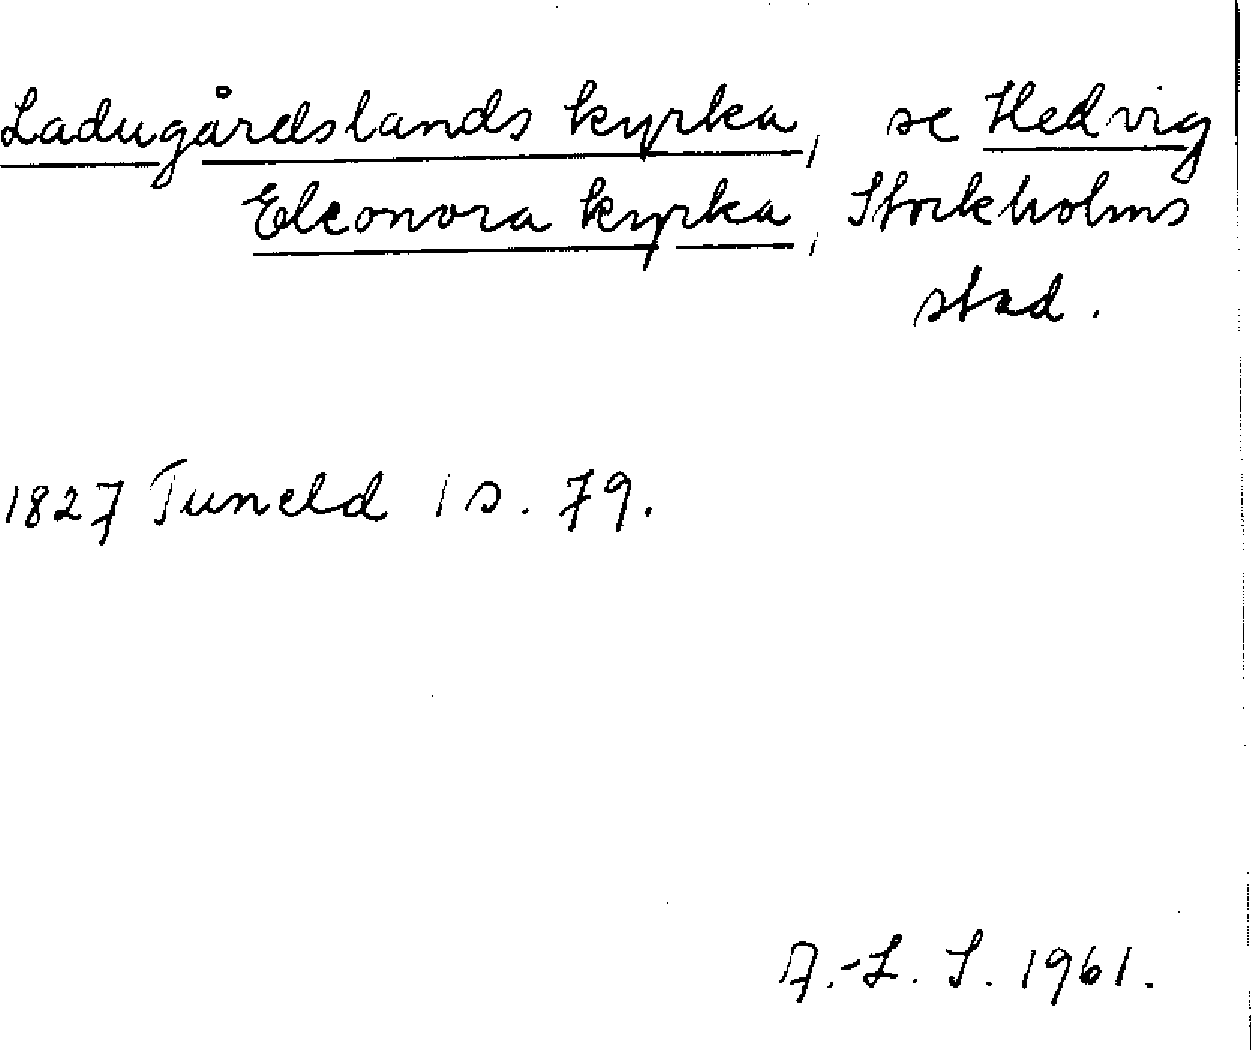 Ladugårdslands kyrka, se Hedvig
Eleonora kyrka, Stockholms
stad.
1827 Tuneld 1 s. 79.
A.-L. S. 1961.